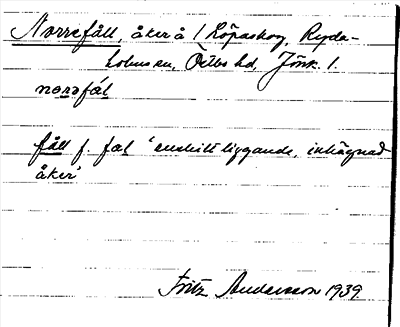 Norrefåll, åker å 1 Röpaskog, Ryda-
holms sn, Östbo hd, Jönk. l.
norəfål
fåll f. fål 'enskilt liggande, inhägnad
åker'
Fritz Andersson 1939.